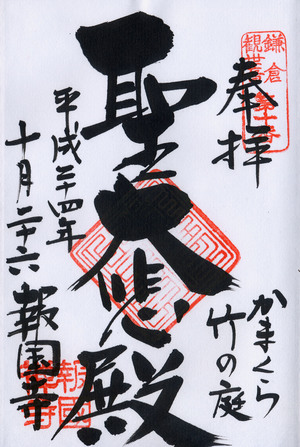 奉拝
かまくら
竹の庭
聖大悲殿
平成二十四年
十月二十六
報国寺
鎌倉
観世音
報國